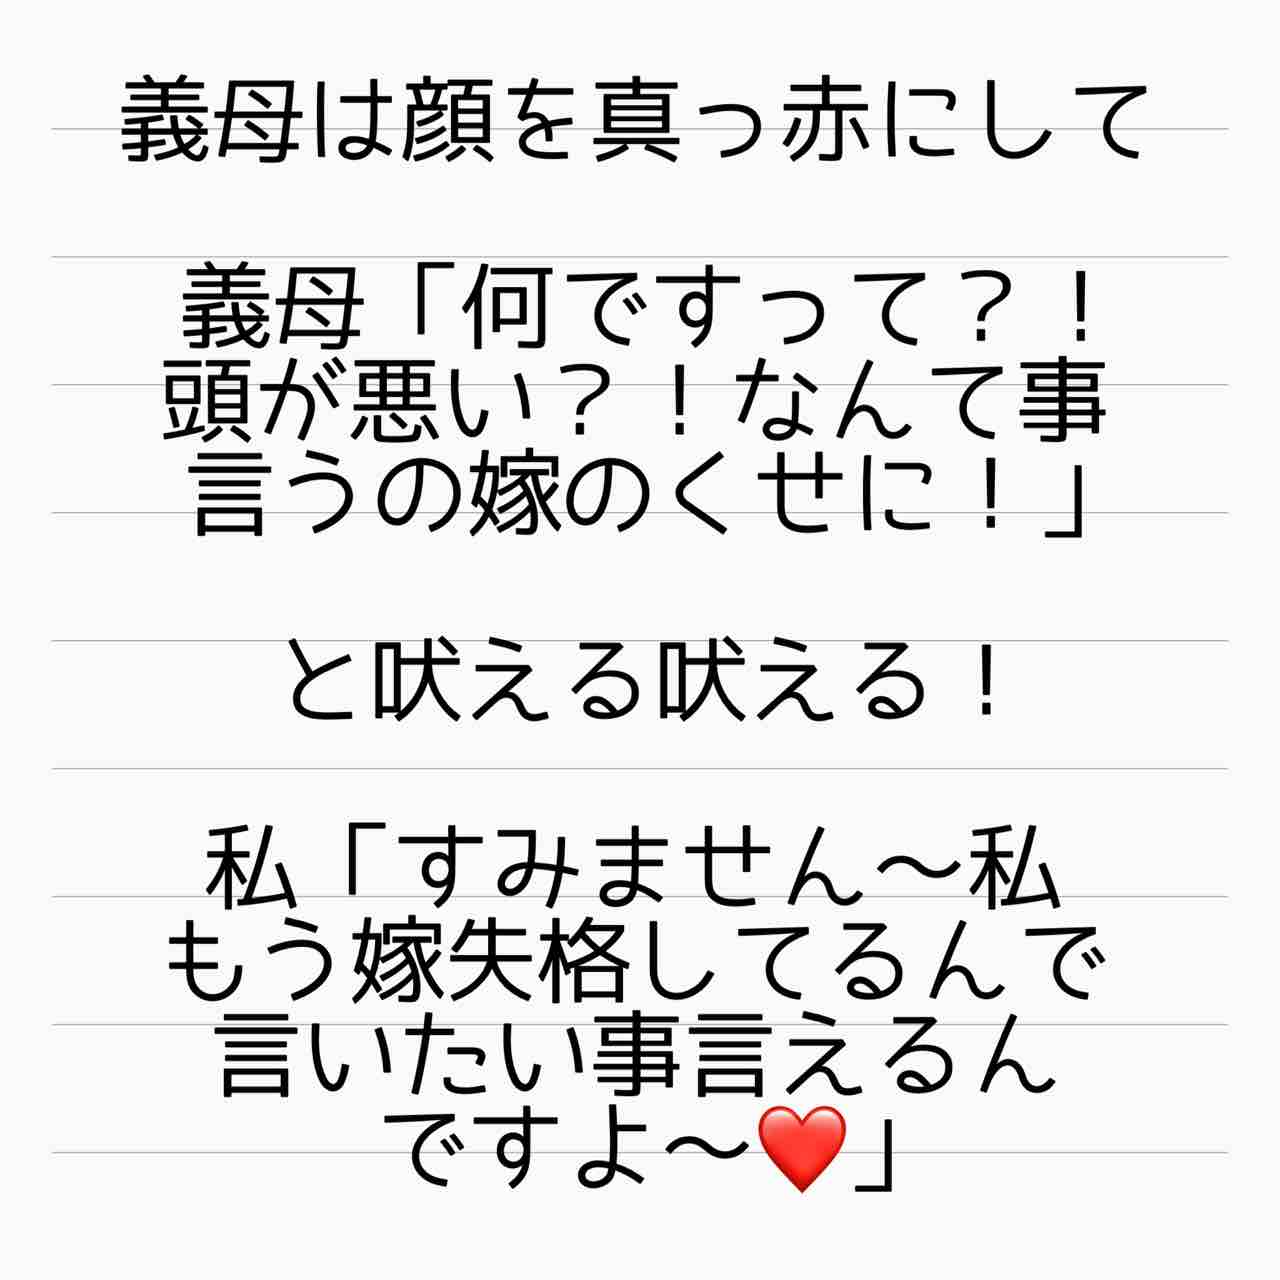 義母は顔を真っ赤にして
義母「何ですって？！
頭が悪い？！なんて事
言うの嫁のくせに！」
と吠える吠える！
私「すみません〜私
もう嫁失格してるんで
言いたい事言えるん
ですよ〜❤️」